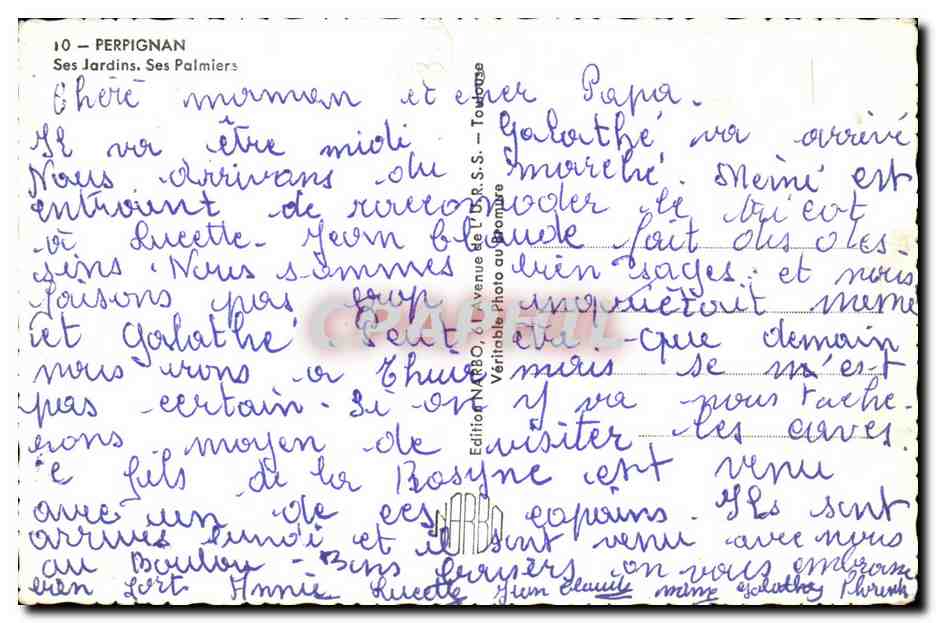 10 — PERPIGNAN
Ses Jardins. Ses Palmiers
Chéré maman et cher Papa.
Il va être midi Galathé va arrivé
Nous arrivans du marché. Mémé est
entraint de raccomoder le tricot
à Lucette. Jean Claude fait des des
sins. Nous sommes bien sages. et nous
faisons pas trop inquiétait meme
et Galathé. Peut être que demain
nous irons a Thuir mais se n'est
pas certain. Si on y va nous tache-
rons moyen de visiter les caves.
e fils de la est venu
avec un de ces copains. Ils sont
arrives lundi et il sont venu avec nous
au Boulou - Bons baisers on vous embrasse
bien fort Annie Lucette Jean Claude mémé Galathé
Edition NARBO, 61 Avenue de l'U.R.S.S. — Toulouse
Véritable Photo au Bromure
NARBO
CPAPHIL